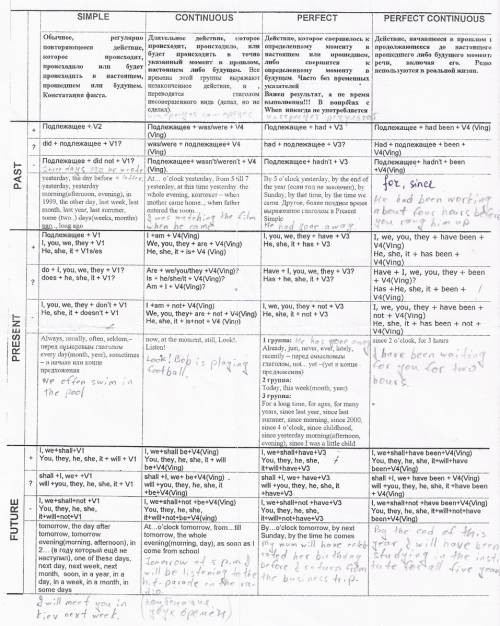 SIMPLE CONTINUOUS PERFECT PERFECT CONTINUOUS
Обычное, регулярно
повторяющееся действие,
которое происходит,
происходило или будет
происходить в настоящем,
прошедшем или будущем.
Констатация факта.
Длительное действие, которое
происходит, происходило, или
будет происходить в точно
указанный момент в прошлом,
настоящем либо будущем. Все
времена этой группы выражают
незаконченное действие, и
переводятся глаголом
несовершенного вида (делал, но не
сделал).
Действие, которое свершилось к
определенному моменту в
настоящем или прошедшем,
либо свершится к
определенному моменту в
будущем. Часто без временных
указателей
Важен результат, а не время
выполнения!!! В вопросах с
When никогда не употребляется
Действие, начавшееся в прошлом и
продолжающееся до настоящего
прошедшего либо будущего момента
речи, включая его. Редко
используются в реальной жизни.
PAST
+ Подлежащее + V2
Подлежащее + was/were + V4
(Ving)
Подлежащее + had + V3
Подлежащее + had been + V4 (Ving)
? did + подлежащее + V1?
was/were + подлежащее+ V4
(Ving)
had + подлежащее + V3?
Had + подлежащее + been +
V4(Ving)
- Подлежащее + did not + V1?
Подлежащее+ wasn't/weren't + V4
(Ving).
Подлежащее+ hadn't + V3
Подлежащее+ hadn't + been
+V4(Ving)
yesterday, the day before
yesterday, yesterday
morning(afternoon, evening), in
1999, the other day, last week, last
month, last year, last summer,
one (two..) days(weeks, months)
ago.., long ago
At... o'clock yesterday, from 5 till 7
yesterday, at this time yesterday the
whole evening, контекст – when
mother came home.., when father
entered the room...
I was watching the film
when he came
By 5 o'clock yesterday, by the end of
the year (если год не закончен), by
Sunday, by that time, by the time we
came. Другое, более позднее время
выраженное глаголом в Present
Simple
He had gone away
for, since
He had been working
about four hours before
you rang him up
PRESENT
+ Подлежащее + V1
I, you, we, they + V1
He, she, it + V1s/es
I +am + V4(Ving)
We, you, they + are + V4(Ving)
He, she, it + is+ V4 (Ving)
I, you, we, they + have + V3
He, she, it + has + V3
I, we, you, they + have been +
V4(Ving)
He, she, it + has been +
V4(Ving)
? do + I, you, we, they + V1?
does + he, she, it + V1?
Are + we/you/they +V4(Ving)?
Is + he/she/it +V4(Ving)?
Am + I + V4(Ving)?
Have + I, you, we, they + V3?
Has + he, she, it + V3?
Have + I, we, you, they + been
+ V4(Ving)?
Has +He, she, it + been +
V4(Ving)?
- I, you, we, they + don't + V1
He, she, it + doesn't + V1
I +am + not+ V4(Ving)
We, you, they+ are + not + V4(Ving)
He, she, it + is+not + V4 (Ving)
I, you, we, they + not + V3
He, she, it + not + V3
I, we, you, they + have been +
not + V4(Ving)
He, she, it + has been + not +
V4(Ving)
Always, usually, often, seldom,–
перед смысловым глаголом
every day(month, year), sometimes
– в начале или конце
предложения
We often swim in
the pool
now, at the moment, still, Look!,
Listen!
Look! Bob is playing
football.
1 группа: He has gone away
Already, just, never, ever, lately,
recently – перед смысловым
глаголом, not... yet –(yet в конце
предложения)
2 группа:
Today, this week(month, year)
3 группа:
For a long time, for ages, for many
years, since last year, since last
summer, since morning, since 2000,
since 4 o'clock, since childhood,
since yesterday morning(afternoon,
evening), since I was a little child
since 2 o'clock, for 3 hours
I have been waiting
for you for two
hours.
FUTURE
+ I, we+shall+V1
You, they, he, she, it + will + V1
I, we+shall be+V4(Ving)
You, they, he, she, it + will
be+V4(Ving)
I, we+shall+have+V3
You, they, he, she,
it+will+have+V3
I, we+shall+have been+V4(Ving)
You, they, he, she, it+will+have
been+V4(Ving)
? shall +I, we+ +V1
will +you, they, he, she, it + V1
shall +I, we+ be+V4(Ving)
will +you, they, he, she, it
+be+V4(Ving)
shall +I, we+ have+V3
will +you, they, he, she, it
+have+V3
shall +I, we+ have been + V4(Ving)
will +you, they, he, she, it +have been
+ V4(Ving)
- I, we+shall+not +V1
You, they, he, she,
it+will+not+V1
I, we+shall+not +be+V4(Ving)
You, they, he, she,
it+will+not+be+V4(ving)
I, we+shall+not+have+V3
You, they, he, she,
it+will+not+have+V3
I, we+shall+not +have been+V4(Ving)
You, they, he, she, it+will+not+have
been+V4(Ving)
tomorrow, the day after
tomorrow, tomorrow
evening(morning, afternoon), in
2... (в году который ещё не
наступил), one of these days,
next day, next week, next
month, soon, in a year, in a
day, in a week, in a month, in
some days
I will meet you in
Kiev next week.
At...o'clock tomorrow, from...till
tomorrow, the whole
evening(morning, day), as soon as I
come from school
Tomorrow at 5 p.m. I
will be listening to the
hit-parade on the ra
dio
By...o'clock tomorrow, by next
Sunday, by the time he comes
My mum will have celebr
ated her birthday
before I return from
the business trip.
By the end of this
year I will have been
studying in the inst
itute for all five years